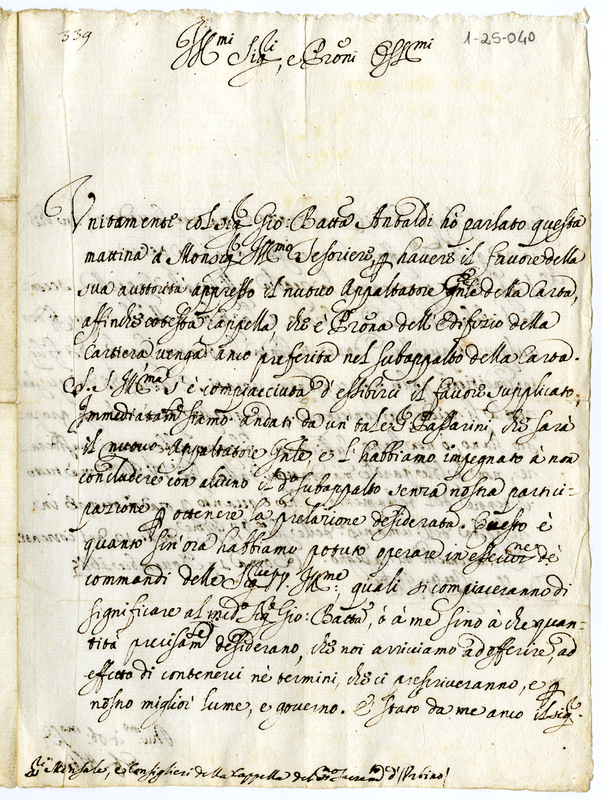 339
1-25-040
Ill.mi Sig.ri, e Proni Oss.mi
Vnitamente col Sig.r Gio: Batta Antaldi hò parlato questa
mattina à Monsig.r Ill.mo Tesoriere p havere il favore della
sua autorità appresso il nuovo Appaltatore Gnle della Carta,
affinche cotesta Cappella, che è Prona dell'Edifizio della
Cartiera venga anco preferita nel subappalto della Carta.
S. S. Ill.ma s'è compiacciuta d'essibirci il favore supplicato.
Immediatam.e siamo andati da un tale Passarini, che sarà
il nuovo Appaltatore Gnle, e l'habbiamo impegnato à non
concludere con alcuno il d.o subappalto senza nostra partici-
pazione p ottenere la prelazione desiderata. Questo è
quanto sin'ora habbiamo potuto operare in essecuz.ne de
commandi delle Sig.rie Ill.me, quali si compiaceranno di
significare al med.o Sig.r Gio: Batta, ò à me sino à che quan-
tità precisam.e desiderano, che noi arriviamo ad offerire, ad
effetto di contenerci nè termini, che ci prescriveranno, e p
nostro miglior lume, e governo. È stato da me anco il Sig.r
Priorale, e Consiglieri della Cappella del Sacram.o d'Urbino